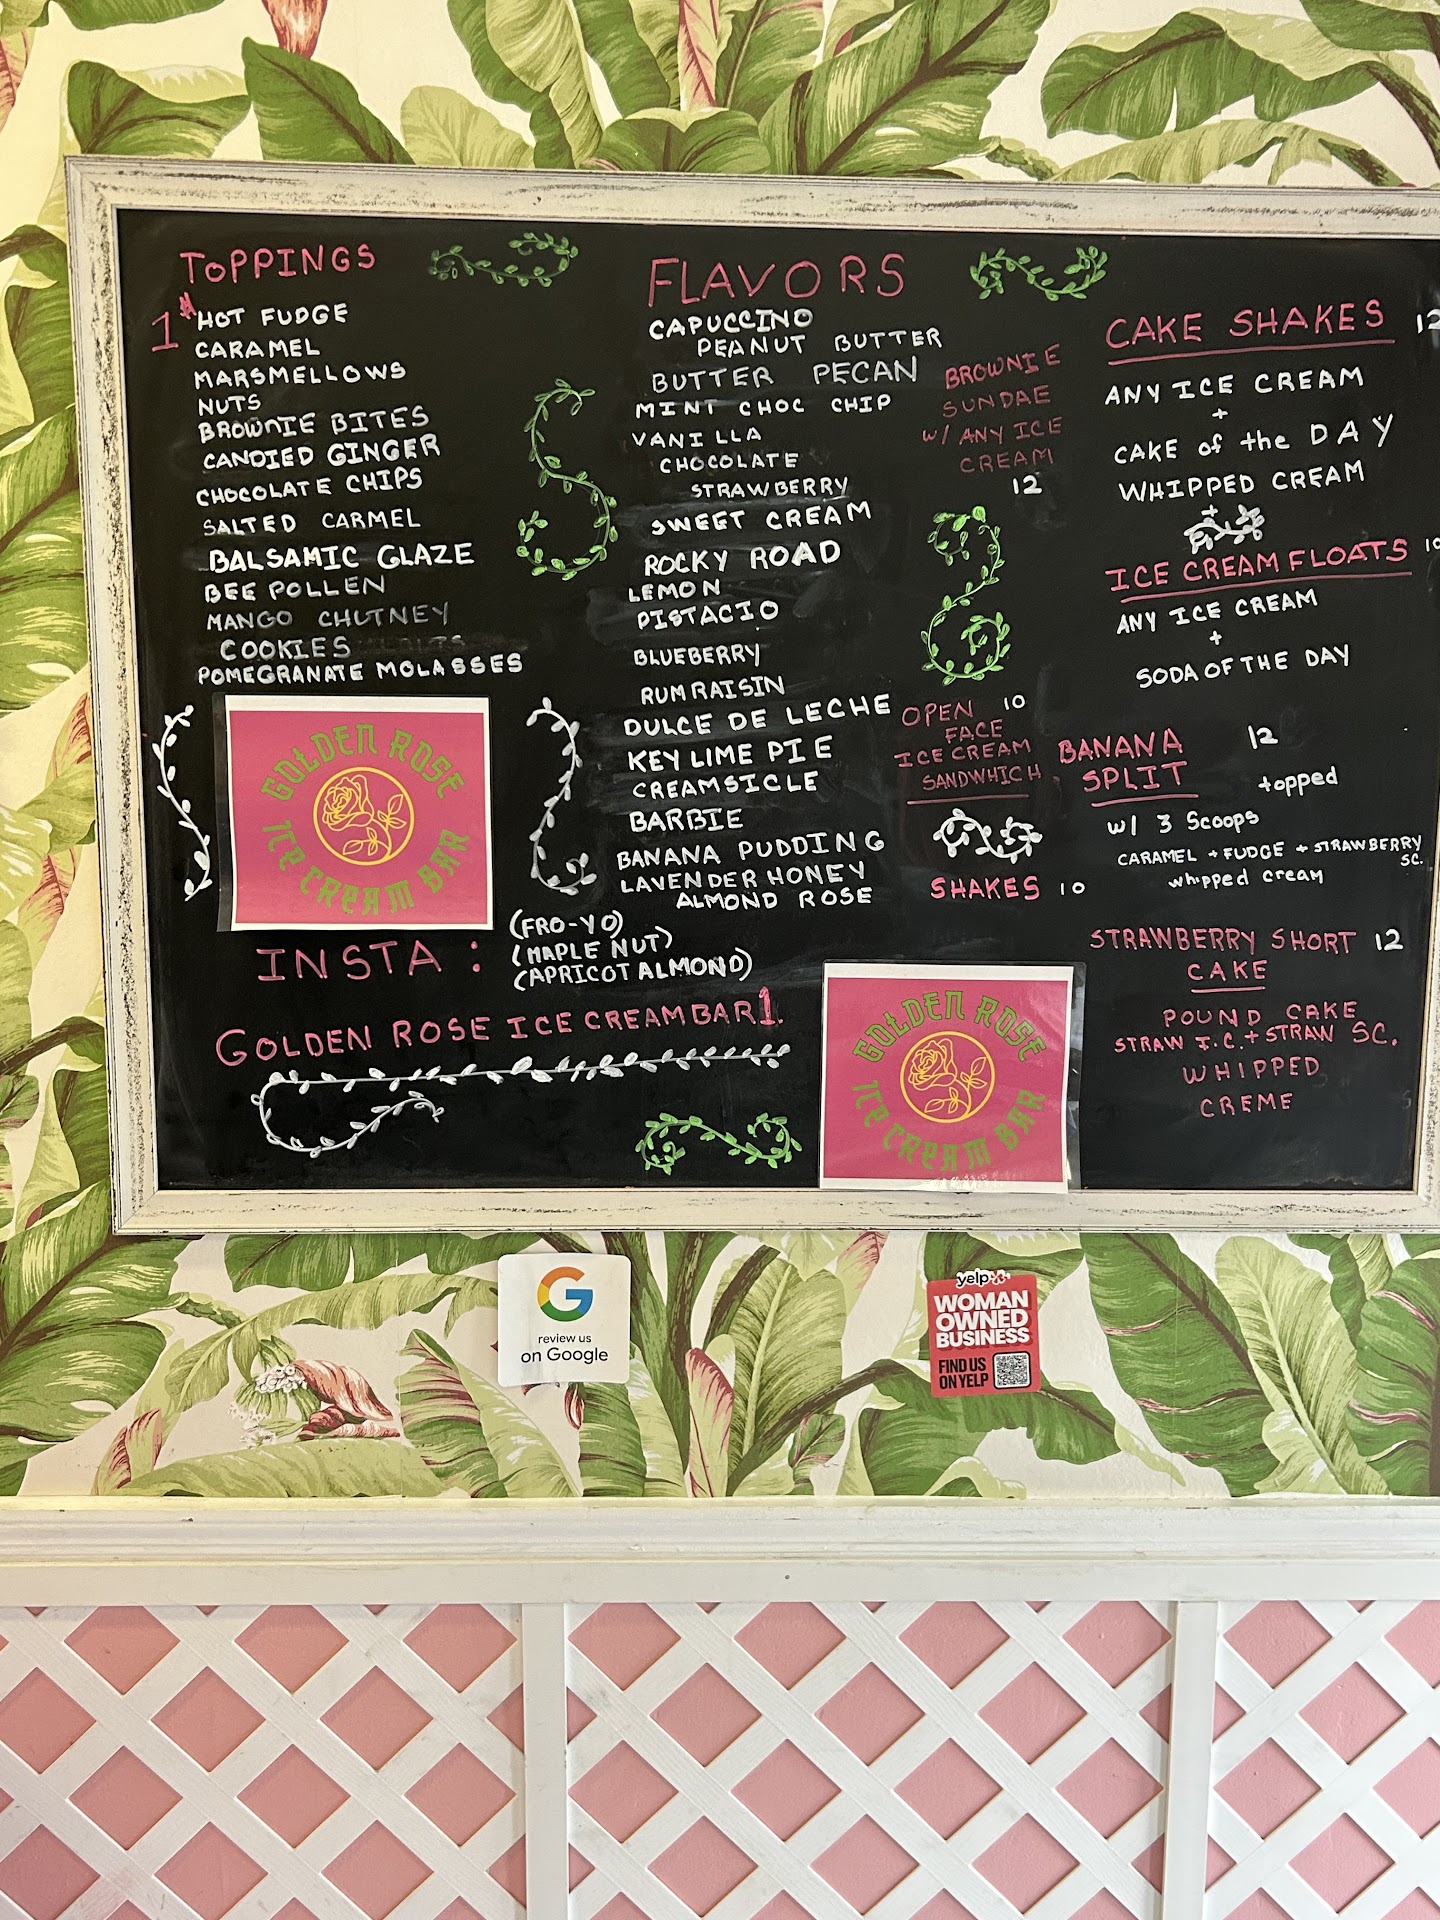 TOPPINGS
1$
HOT FUDGE
CARAMEL
MARSMELLOWS
NUTS
BROWNIE BITES
CANDIED GINGER
CHOCOLATE CHIPS
SALTED CARMEL
BALSAMIC GLAZE
BEE POLLEN
MANGO CHUTNEY
COOKIES
POMEGRANATE MOLASSES
GOLDEN ROSE
ICE CREAM BAR
INSTA:
GOLDEN ROSE ICE CREAM BAR1.
FLAVORS
CAPUCCINO
PEANUT BUTTER
BUTTER PECAN
MINT CHOC CHIP
VANILLA
CHOCOLATE
STRAWBERRY
SWEET CREAM
ROCKY ROAD
LEMON
PISTACIO
BLUEBERRY
RUM RAISIN
DULCE DE LECHE
KEY LIME PIE
CREAMSICLE
BARBIE
BANANA PUDDING
LAVENDER HONEY
ALMOND ROSE
(FRO-YO)
(MAPLE NUT)
(APRICOT ALMOND)
BROWNIE
SUNDAE
w/ ANY ICE
CREAM
12
OPEN 10
FACE
ICE CREAM
SANDWHICH
SHAKES 10
GOLDEN ROSE
ICE CREAM BAR
CAKE SHAKES 12
ANY ICE CREAM
+
CAKE of the DAY
+
WHIPPED CREAM
ICE CREAM FLOATS 10
ANY ICE CREAM
+
SODA OF THE DAY
BANANA 12
SPLIT topped
w/ 3 Scoops
CARAMEL + FUDGE + STRAWBERRY
SC.
whipped cream
STRAWBERRY SHORT 12
CAKE
POUND CAKE
STRAW I.C. + STRAW SC.
WHIPPED
CREME
G
review us
on Google
yelp
WOMAN
OWNED
BUSINESS
FIND US
ON YELP